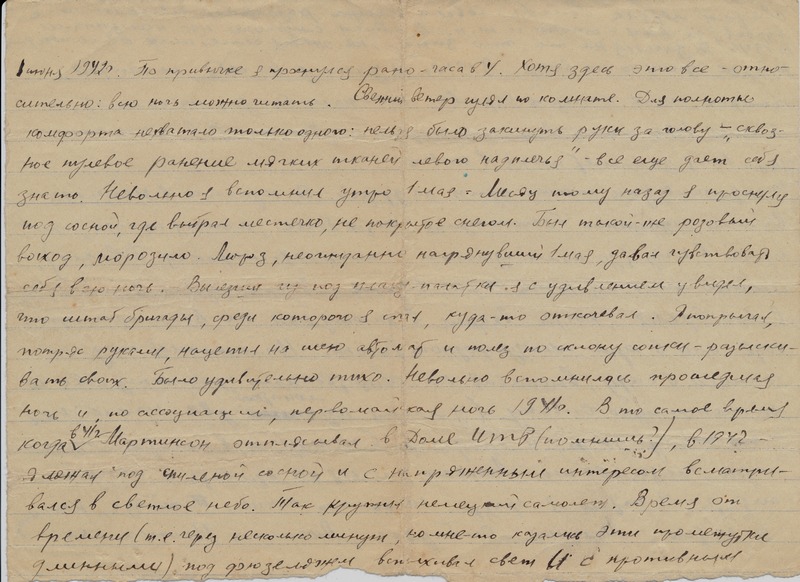 1 июня 1942г. По привычке я проснулся рано - часа в 4. Хотя здесь это все - отно-
сительно: всю ночь можно читать. Свежий ветер гулял по комнате. Для полноты
комфорта нехватало только одного: нельзя было закинуть руки за голову - "сквоз-
ное пулевое ранение мягких тканей левого надплечья" - все еще дает себя
знать. Невольно я вспомнил утро 1 мая = Месяц тому назад я проснулся
под сосной, где выбрал местечко, не покрытое снегом. Был такой-же розовый
восход, морозило. Мороз, неожиданно нагрянувший 1 мая, давал чувствовать
себя всю ночь. Вылезая из под плащ-палатки я с удивлением увидел,
что штаб бригады, среди которого я спал, куда-то откочевал. Я попрыгал,
потряс руками, нацепил на шею автомат и полез по склону сопки - разыски-
вать своих. Было удивительно тихо. Невольно вспомнилась прошедшая
ночь и, по ассоциации, первомайская ночь 1941г. В то самое время
когда в 41г Мартинсон отплясывал в Доме ИТР (помнишь?), в 1942 -
я лежал под сосной и с напряженным интересом всматри-
вался в светлое небо. Там кружил немецкий самолет. Время от
времени (т.е. через несколько минут, но мне-то казались эти промежутки
длинными) под фюзеляжем вспыхивал свет и с противным